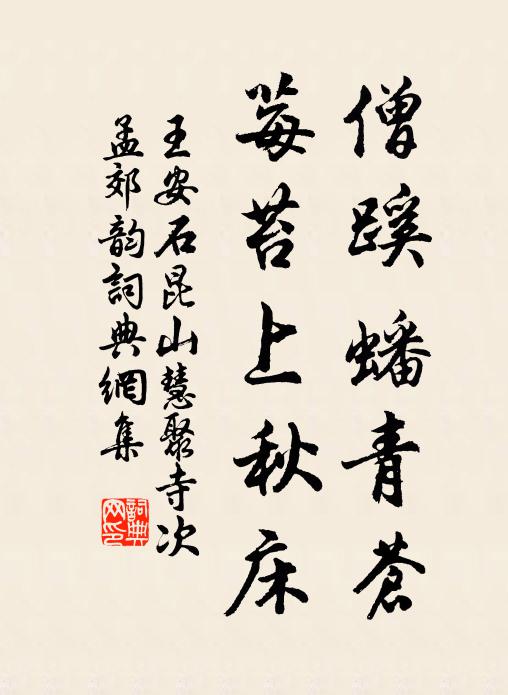 僧蹊蟠青蒼
莓苔上秋床
王安石昆山慧聚寺次
孟郊韵詞典網集
詞典
网印